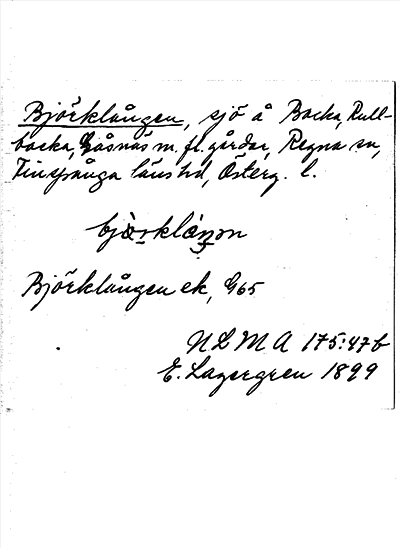 Björklången, sjö å Backa, Rull-
backa, Gåsnäs m. fl. gårdar, Regna sn,
Finspånga läns hd, Österg. l.
Björklången ek, G65
NLMA 175:47b
E. Lagergren 1899